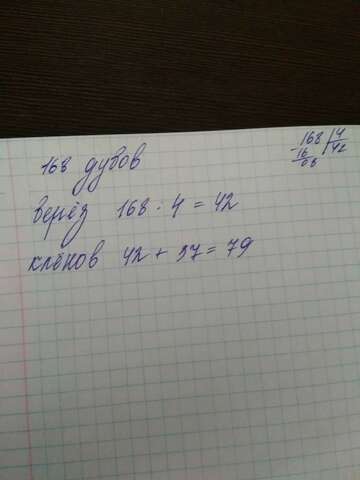 168 дубов
берёз 168 : 4 = 42
клёнов 42 + 37 = 79
168 4
16 42
08